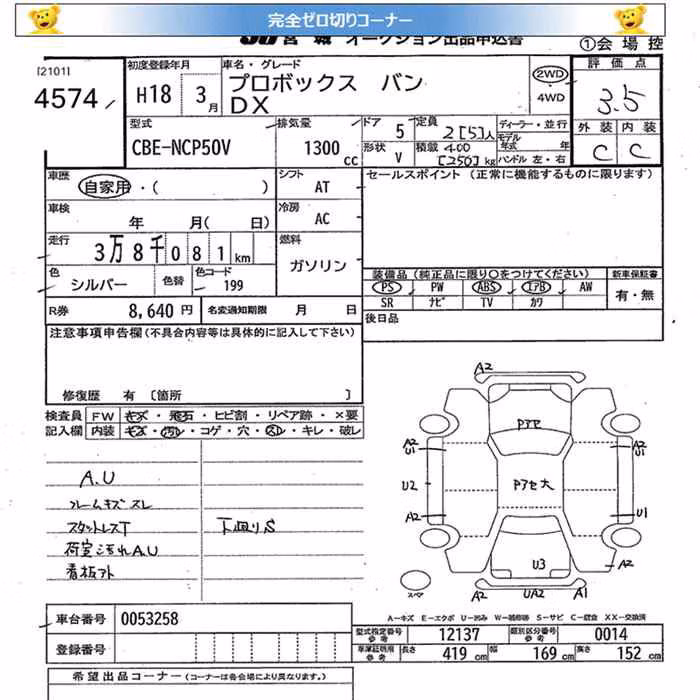 完全ゼロ切りコーナー
JU 宮城 オークション出品申込書
①会場控
[2101]
4574
初度登録年月
H18 3月
車名・グレード
プロボックス バン
DX
2WD
・
4WD
評価点
3.5
外装 内装
C C
型式
CBE-NCP50V
排気量
1300 cc
ドア 5
形状 V
定員 2[5]人
積載 400 [250]kg
ディーラー・並行
モデル年式 年
ハンドル 左・右
車歴
自家用・( )
車検
年 月( 日)
走行
3万8千081km
色
シルバー
色替
色コード
199
シフト AT
冷房 AC
燃料
ガソリン
セールスポイント (正常に機能するものに限ります)
装備品(純正品に限り○をつけてください)
新車保証書
PS PW ABS エアB AW
SR ナビ TV カワ
有・無
R券 8,640円
名変通知期限 月 日
後日品
注意事項申告欄(不具合内容等は具体的に記入して下さい)
修復歴 有 [箇所 ]
検査員
記入欄
FW キズ・飛石・ヒビ割・リペア跡・×要
内装 キズ・汚レ・コゲ・穴・スレ・キレ・破レ
A.U
フレームキズスレ
スタットレスT
下廻りS
荷室汚れA.U
看板アト
A2
Pアセ
A2
U1
A2
U1
U2
Pアセ大
A2
U1
U3
A2
スペア
A2 UA2 A1
A-キズ E-エクボ U-凹み W-補修跡 S-サビ C-腐食 XX-交換済
車台番号 0053258
登録番号
型式指定番号 参考 12137
類別区分番号 参考 0014
車庫証明用 参考
長さ 419cm
幅 169cm
高さ 152cm
希望出品コーナー (コーナーは各会場により異なります。)